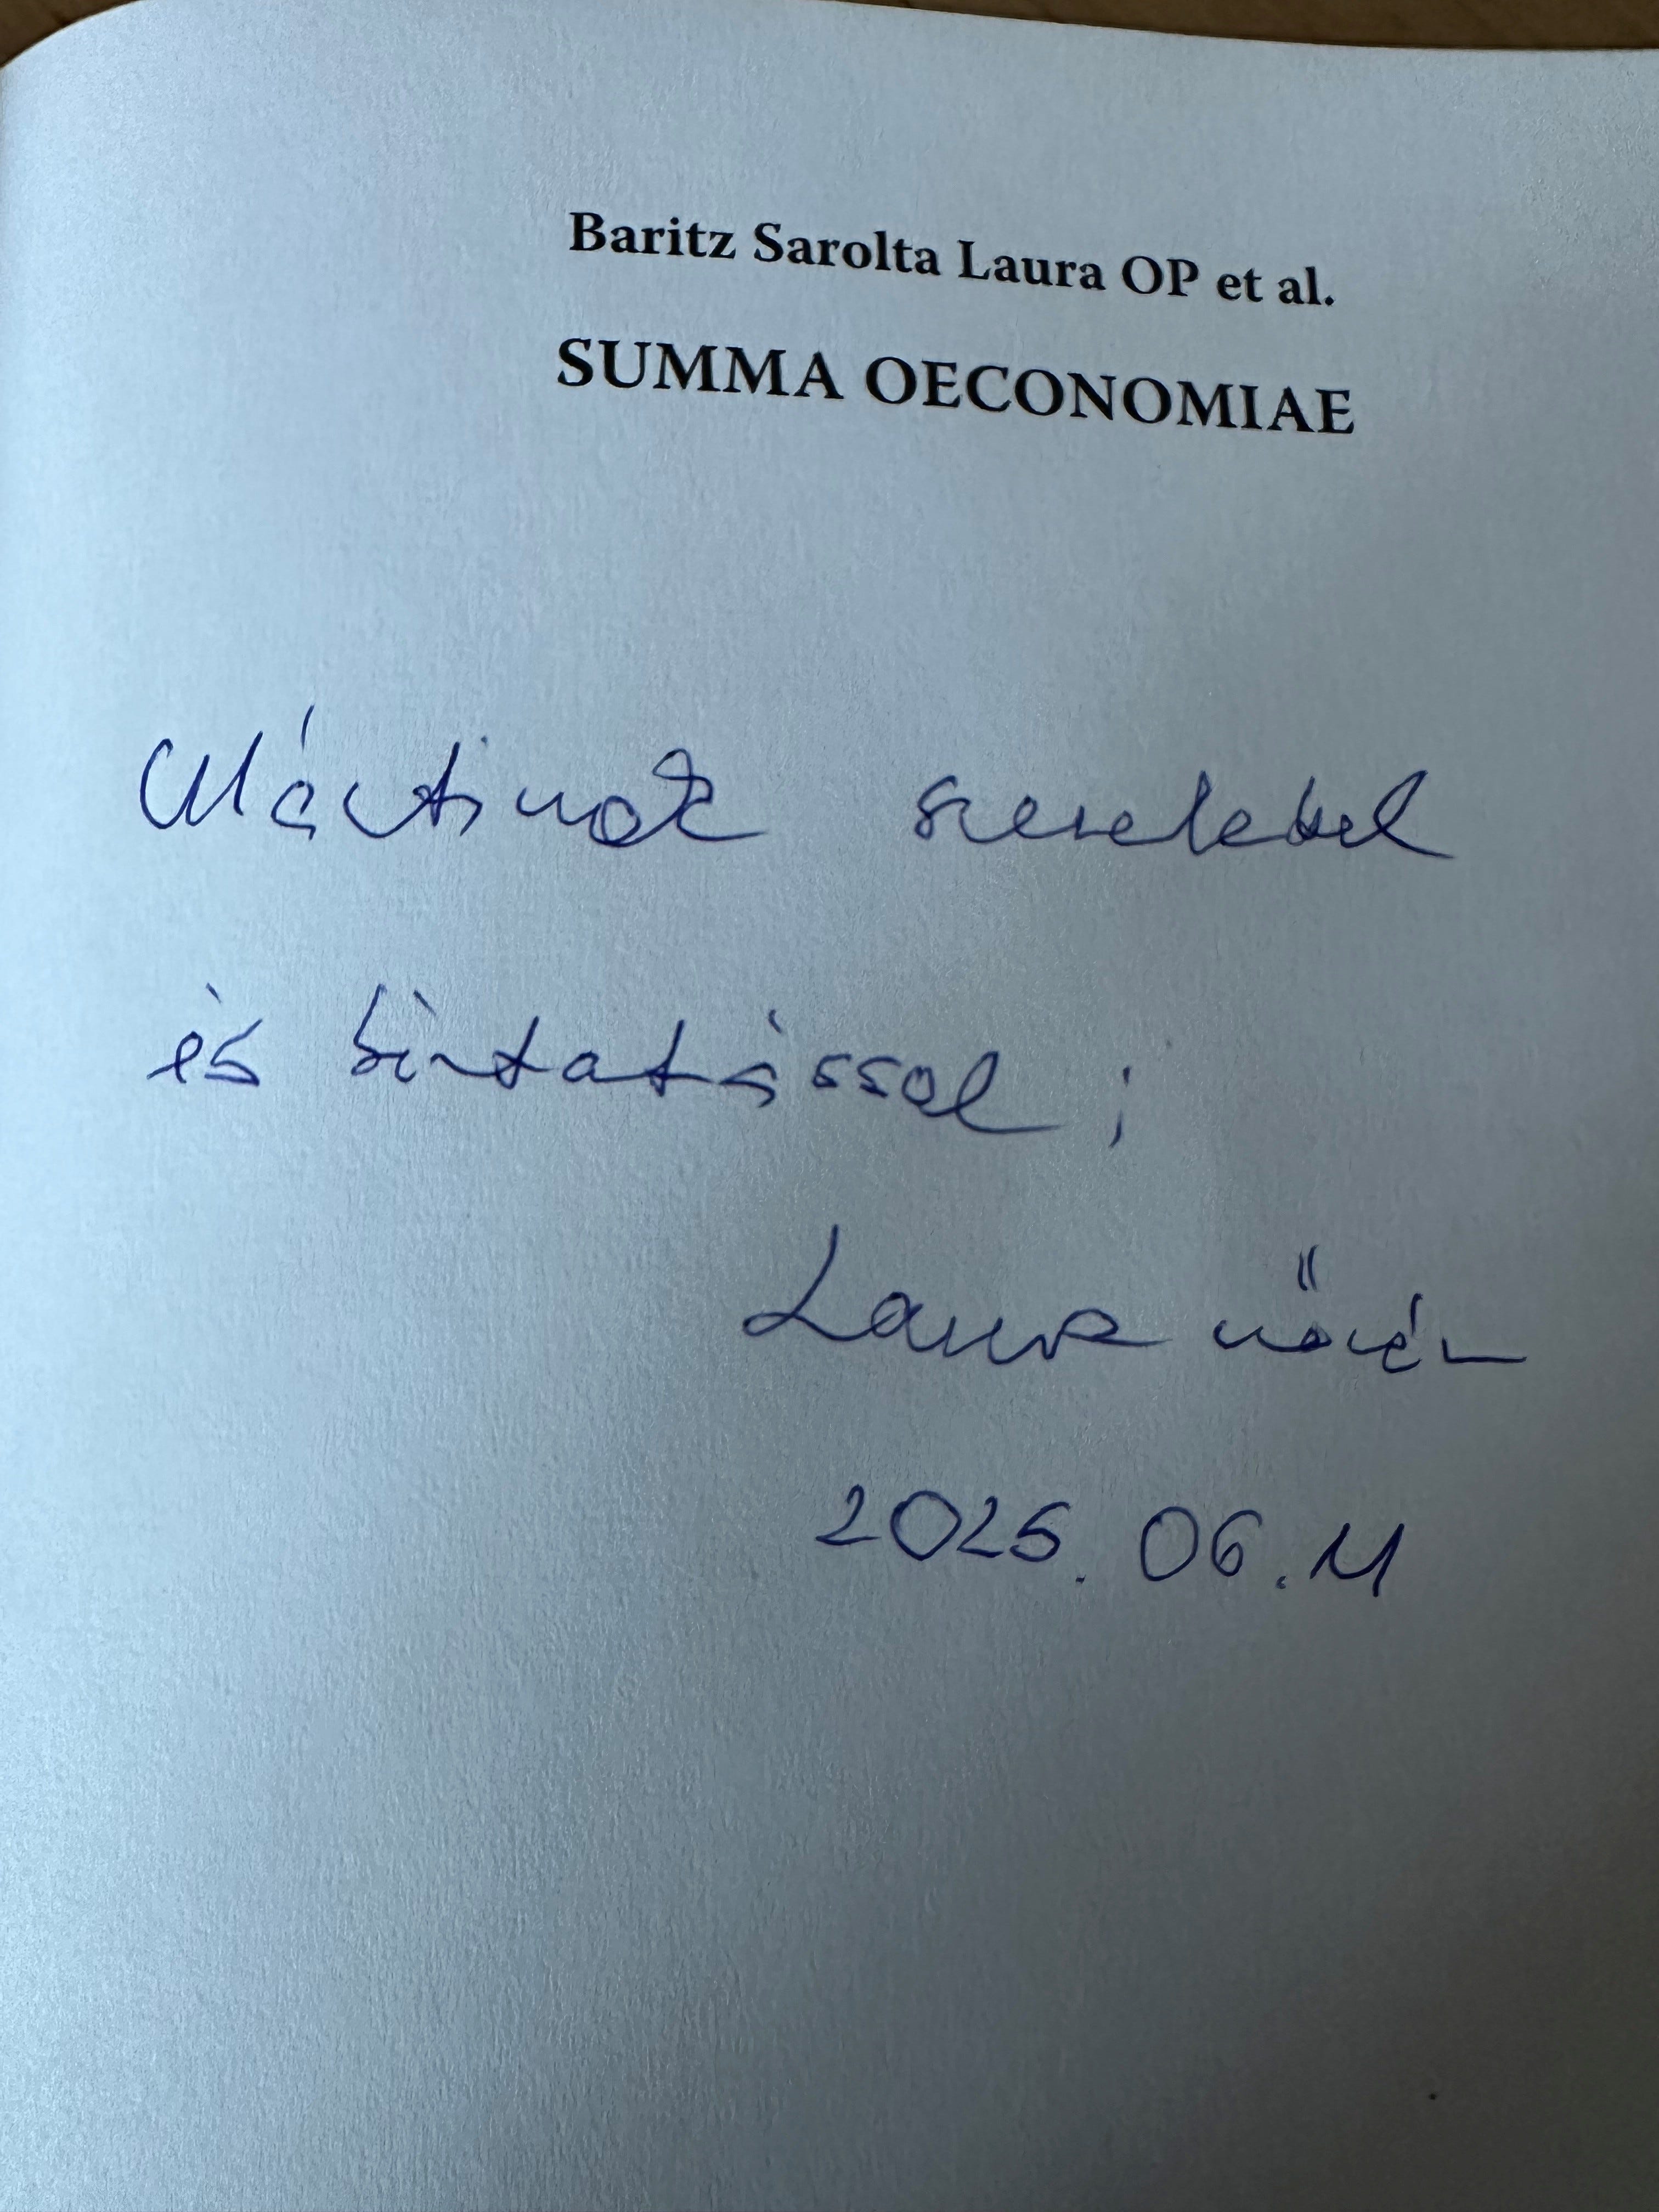 Baritz Sarolta Laura OP et al.
SUMMA OECONOMIAE
Mártinak szeretettel
és bíztatással;
Laura nővér
2025.06.11